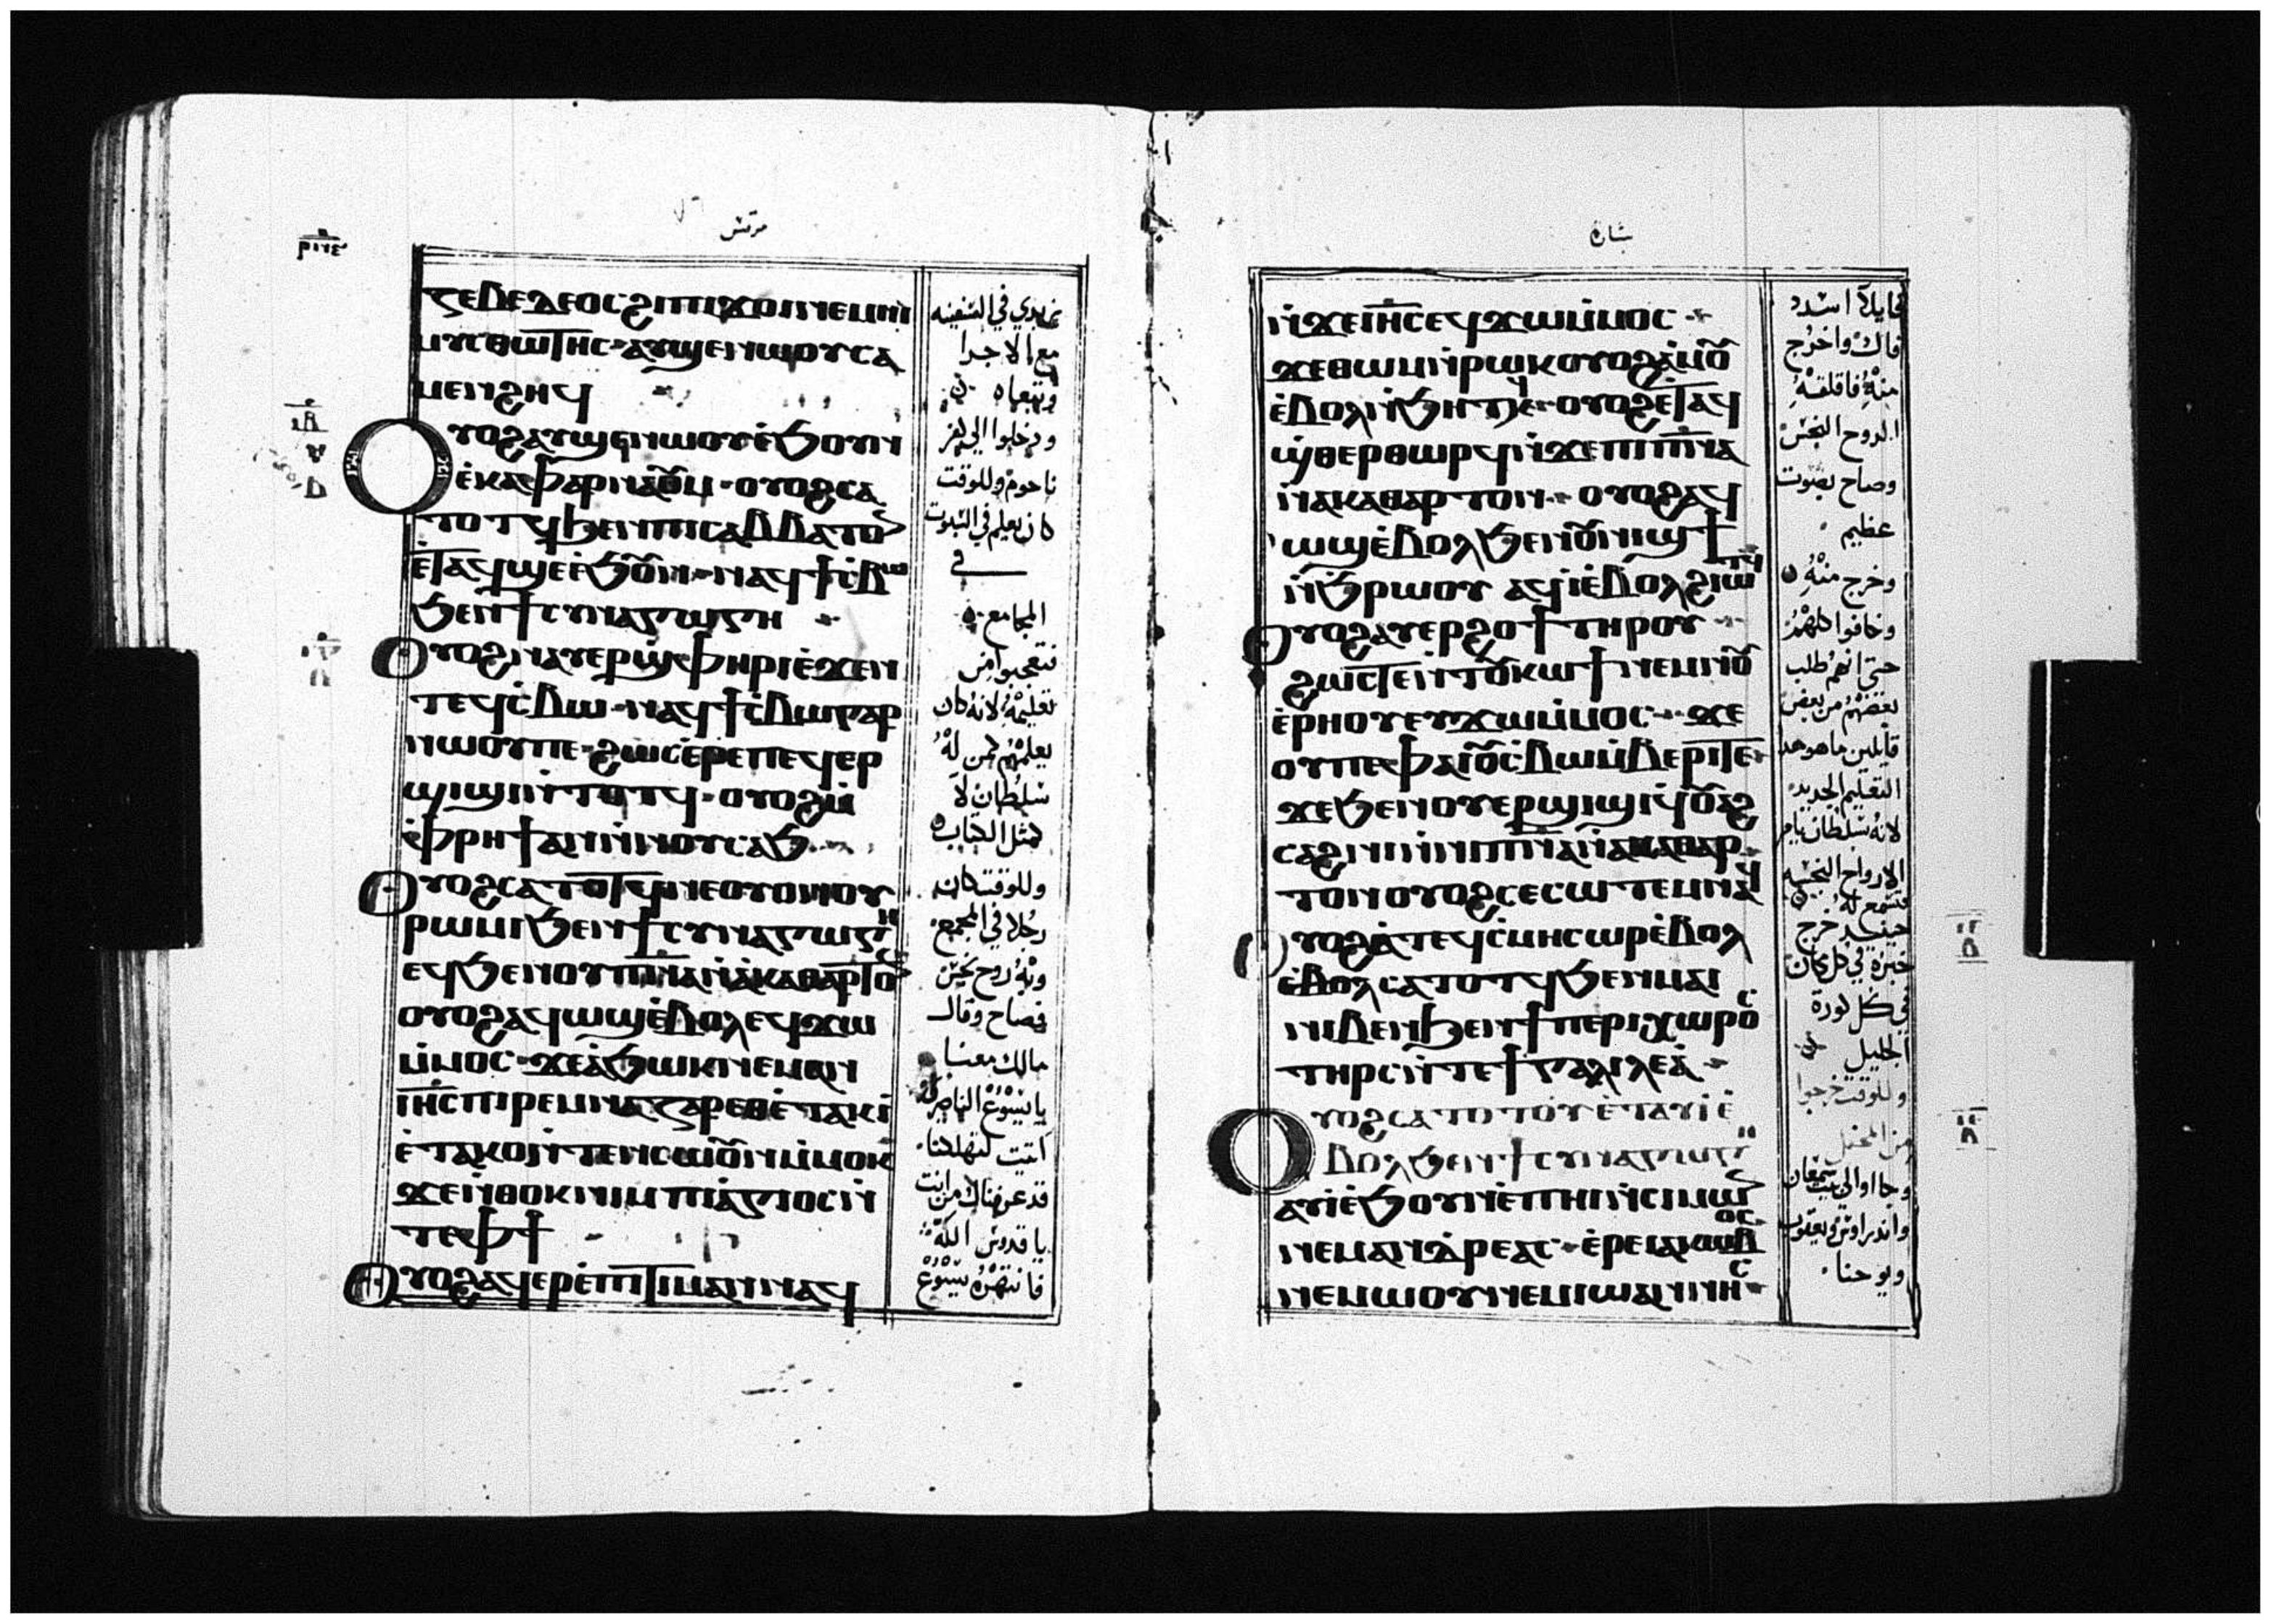 مرقس
ⲍⲉⲃⲉⲇⲉⲟⲥ ϩⲓ ⲡⲓϫⲟⲓ ⲛⲉⲙ ⲛⲓ
ⲙⲓⲥⲑⲱⲧⲏⲥ ⲁⲩϣⲉ ⲛⲱⲟⲩ ⲥⲁ
ⲙⲉⲛϩⲏϥ
ⲟⲩⲟϩ ⲁⲩϣⲉ ⲛⲱⲟⲩ ⲉ̀ϧⲟⲩⲛ
ⲉ̀ⲕⲁⲫⲁⲣⲛⲁⲟⲩⲙ ⲟⲩⲟϩ ⲥⲁ
ⲧⲟⲧϥ ϧⲉⲛ ⲡⲓⲥⲁⲃⲃⲁⲧⲟⲛ
ⲉ̀ⲧⲁϥϣⲉ ⲉ̀ϧⲟⲩⲛ ⲛⲁϥϯⲥ̀ⲃⲱ
ϧⲉⲛ ϯⲥⲩⲛⲁⲅⲱⲅⲏ
ⲟⲩⲟϩ ⲛⲁⲩⲉⲣϣ̀ⲫⲏⲣⲓ ⲉ̀ϫⲉⲛ
ⲧⲉϥⲥ̀ⲃⲱ ⲛⲁϥϯⲥ̀ⲃⲱ ⲅⲁⲣ
ⲛⲱⲟⲩ ⲡⲉ ϩⲱⲥ ⲉ̀ⲣⲉ ⲡⲉϥⲉⲣ
ϣⲓϣⲓ ⲛ̀ⲧⲟⲧϥ ⲟⲩⲟϩ ⲙ̀
ⲫ̀ⲣⲏϯ ⲁⲛ ⲛ̀ⲛⲟⲩⲥⲁϧ
ⲟⲩⲟϩ ⲥⲁⲧⲟⲧϥ ⲛⲉ ⲟⲩⲟⲛ ⲟⲩ
ⲣⲱⲙⲓ ϧⲉⲛ ϯⲥⲩⲛⲁⲅⲱⲅⲏ
ⲉϥϧⲉⲛ ⲟⲩⲡ̅ⲛ̅ⲁ̅ ⲛ̀ⲁⲕⲁⲑⲁⲣⲧⲟⲛ
ⲟⲩⲟϩ ⲁϥⲱϣ ⲉ̀ⲃⲟⲗ ⲉϥϫⲱ
ⲙ̀ⲙⲟⲥ ϫⲉ ⲁ̀ϧⲱⲕ ⲛⲉⲙⲁⲛ
ⲓ̅ⲏ̅ⲥ̅ ⲡⲓⲣⲉⲙⲛⲁⲍⲁⲣⲉⲑ ⲉ̀ⲧⲁⲕⲓ̀
ⲉ̀ⲧⲁⲕⲟⲛ ⲧⲉⲛⲥⲱⲟⲩⲛ ⲙ̀ⲙⲟⲕ
ϫⲉ ⲛ̀ⲑⲟⲕ ⲛⲓⲙ ⲡⲓⲁ̀ⲅⲓⲟⲥ ⲛ̀
ⲧⲉ ⲫϯ
ⲟⲩⲟϩ ⲁϥⲉⲣⲉ̀ⲡⲓⲧⲓⲙⲁⲛ ⲛⲁϥ
زبدي في السفينه
مع الاجرا
وتبعاه
ودخلوا الي كفر
ناحوم وللوقت
كان يعلم في السبوت
في
المجامع
فتعجبوا من
تعليمه لانه كان
يعلمهم كمن له
سلطان لا
كمثل الكتاب
وللوقت كان
رجلا في المجمع
وبه روح نجس
فصاح وقال
مالك معنا
يا يسوع الناصري
اتيت لتهلكنا
قد عرفناك من انت
يا قدوس الله
فانتهره يسوع
بشارة
ⲛ̀ϫⲉ ⲓ̅ⲏ̅ⲥ̅ ⲉϥϫⲱ ⲙ̀ⲙⲟⲥ
ϫⲉ ⲑⲱⲙ ⲛ̀ⲣⲱⲕ ⲟⲩⲟϩ ⲁ̀ⲙⲟⲩ
ⲉ̀ⲃⲟⲗ ⲛ̀ϧⲏⲧϥ ⲟⲩⲟϩ ⲉ̀ⲧⲁϥ
ϣ̀ⲑⲉⲣⲑⲱⲣϥ ⲛ̀ϫⲉ ⲡⲓⲡ̅ⲛ̅ⲁ̅
ⲛ̀ⲁⲕⲁⲑⲁⲣⲧⲟⲛ ⲟⲩⲟϩ ⲁϥ
ⲱϣ ⲉ̀ⲃⲟⲗ ϧⲉⲛ ⲟⲩⲛⲓϣϯ
ⲛ̀ϧ̀ⲣⲱⲟⲩ ⲁϥⲓ̀ ⲉ̀ⲃⲟⲗ ϩⲓⲱⲧϥ
ⲟⲩⲟϩ ⲁⲩⲉⲣϩⲟϯ ⲧⲏⲣⲟⲩ
ϩⲱⲥⲧⲉ ⲛ̀ⲧⲟⲩⲕⲱϯ ⲛⲉⲙ ⲛⲟⲩ
ⲉ̀ⲣⲏⲟⲩ ⲉⲩϫⲱ ⲙ̀ⲙⲟⲥ ϫⲉ
ⲟⲩ ⲡⲉ ⲫⲁⲓ ⲟⲩⲥ̀ⲃⲱ ⲙ̀ⲃⲉⲣⲓ ⲧⲉ
ϫⲉ ϧⲉⲛ ⲟⲩⲉⲣϣⲓϣⲓ ϥ̀ⲟⲩⲁϩ
ⲥⲁϩⲛⲓ ⲛ̀ⲛⲓⲡ̅ⲛ̅ⲁ̅ ⲛ̀ⲁⲕⲁⲑⲁⲣ
ⲧⲟⲛ ⲟⲩⲟϩ ⲥⲉⲥⲱⲧⲉⲙ ⲛⲁϥ
ⲟⲩⲟϩ ⲁ̀ ⲧⲉϥⲥ̀ⲙⲏ ⲥⲱⲣ ⲉ̀ⲃⲟⲗ
ⲉ̀ⲃⲟⲗ ⲥⲁⲧⲟⲧϥ ϧⲉⲛ ⲙⲁⲓ
ⲛⲓⲃⲉⲛ ϧⲉⲛ ϯⲡⲉⲣⲓⲭⲱⲣⲟⲥ
ⲧⲏⲣⲥ ⲛ̀ⲧⲉ ϯⲅⲁⲗⲓⲗⲉⲁ̀
ⲟⲩⲟϩ ⲥⲁⲧⲟⲧⲟⲩ ⲉ̀ⲧⲁⲩⲓ̀ ⲉ̀
ⲃⲟⲗ ϧⲉⲛ ϯⲥⲩⲛⲁⲅⲱⲅⲏ
ⲁⲩⲓ̀ ⲉ̀ϧⲟⲩⲛ ⲉ̀ⲡⲏⲓ ⲛ̀ⲥⲓⲙⲱⲛ
ⲛⲉⲙ ⲁⲛⲇⲣⲉⲁⲥ ⲉ̀ⲣⲉ ⲓⲁⲕⲱⲃⲟⲥ
ⲛⲉⲙⲱⲟⲩ ⲛⲉⲙ ⲓⲱⲁⲛⲛⲏⲥ
قايلا اسدد
فاك واخرج
منه فاقلقه
الروح النجس
وصاح بصوت
عظيم
وخرج منه
وخافوا كلهم
حتي انهم طلب
بعضهم من بعض
قايلين ما هو هدا
التعليم الجديد
لانه بسلطان يامر
الارواح النجسه
فتسمع له
حينيد خرج
خبره في كل مكان
في كل كورة
الجليل
وللوقت خرجوا
من المحفل
وجااوا الي بيت سمعان
واندراوس ويعقوب
ويوحنا